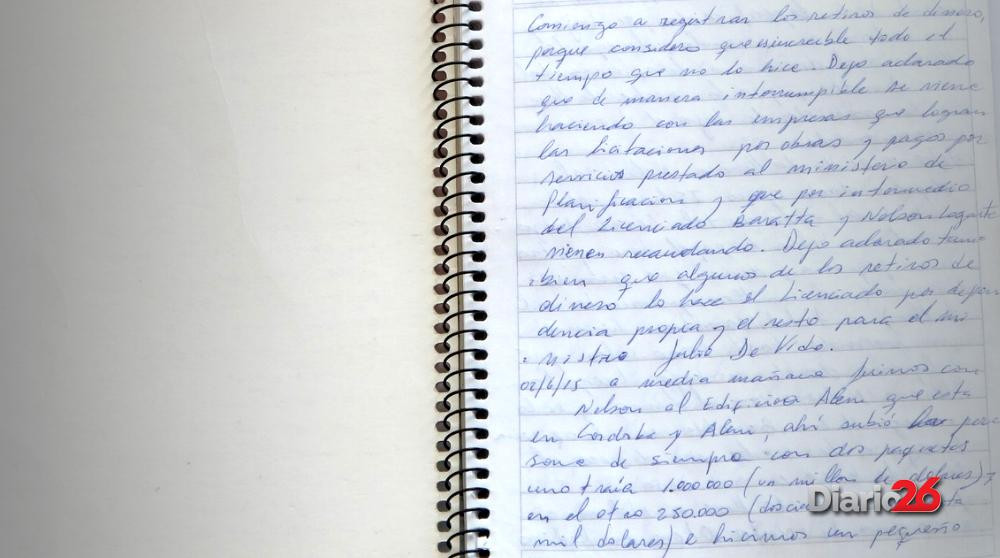 Comienzo a registrar los retiros de dinero,
porque considero que es increible todo el
tiempo que no lo hice. Dejo aclarado
que de manera interrumpible se viene
haciendo con las empresas que logran
las licitaciones por obras y pagos por
servicios prestado al ministerio de
Planificacion y que por intermedio
del Licenciado Baratta y Nelson Lazarte
vienen recaudando. Dejo aclarado tam
bien que algunos de los retiros de
dinero lo hace el Licenciado por depen
dencia propia y el resto para el mi
nistro Julio De Vido.
02/6/15 a media mañana fuimos con
Nelson al Edificio Alem que esta
en Cordoba y Alem, ahí subió la per
sona de siempre con dos paquetes
uno traía 1.000.000 (un millon de dolares) y
en el otro 250.000 (doscie ta
mil dolares) e hicimos un pequeño
Diario26